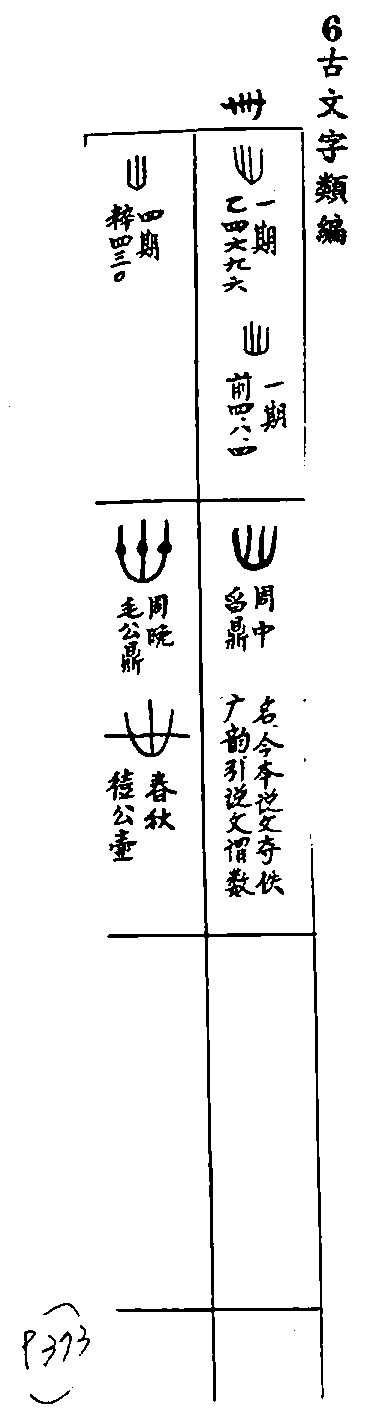 6古文字類編
卌
乙四六九六
一期
前四·八·四
一期
舀鼎
周中
广韵引说文谓数
名.今本说文夺佚
粹四三〇
四期
毛公鼎
周晚
公壷
春秋
P373